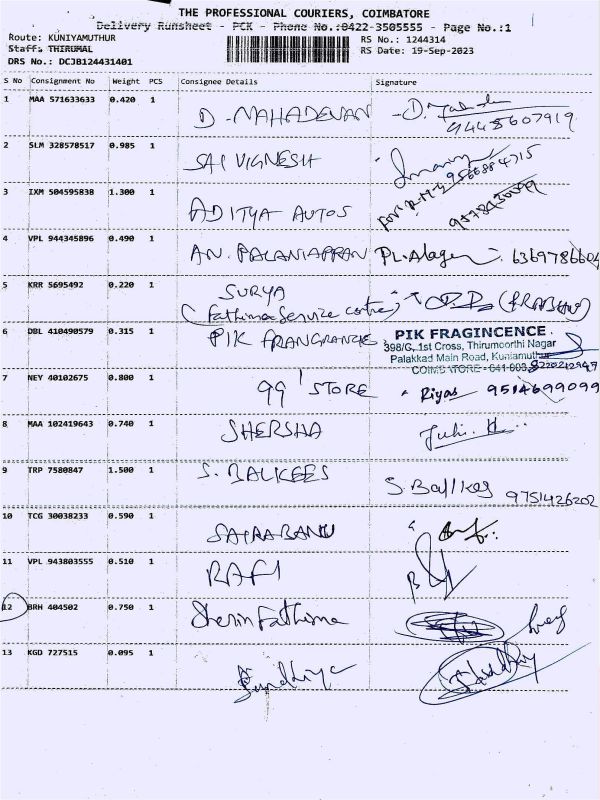 THE PROFESSIONAL COURIERS, COIMBATORE
Delivery Runsheet - PCK - Phone No.:0422-3505555 - Page No.:1
Route: KUNIYAMUTHUR
RS No.: 1244314
Staff: THIRUMAL
RS Date: 19-Sep-2023
DRS No.: DCJB124431401
S No Consignment No Weight PCS Consignee Details Signature
1 MAA 571633633 0.420 1 D. MAHADEVAN
9445607919
2 SLM 328578517 0.985 1 SAI VIGNESH
9566884715
3 IXM 504595838 1.300 1 ADITYA AUTOS
4 VPL 944345896 0.490 1 AN. PALANIAPPAN
5 KRR 5695492 0.220 1 SURYA
(Fathima Service Centre) (PRABHU)
6 DBL 410490579 0.315 1 PIK FRANGRANCE PIK FRAGINCENCE
398/G, 1st Cross, Thirumoorthi Nagar
Palakkad Main Road, Kuniamuthur
COIMBATORE - 641 008
7 NEY 40102675 0.800 1 99' STORE Riyas 9514699099
8 MAA 102419643 0.740 1 SHERSHA
9 TRP 7580847 1.500 1 S. BALKEES S. Balkees 9751426202
10 TCG 30038233 0.590 1 SAIRABANU
11 VPL 943803555 0.510 1 RAFI
12 BRH 404502 0.750 1 Sherin Fathima
13 KGD 727515 0.095 1 Sindhiya